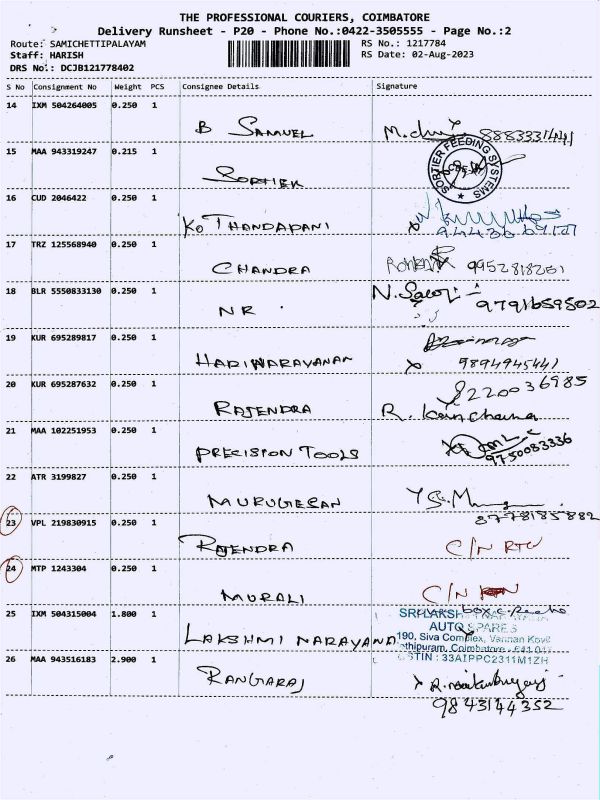 THE PROFESSIONAL COURIERS, COIMBATORE
Delivery Runsheet - P20 - Phone No.:0422-3505555 - Page No.:2
Route: SAMICHETTIPALAYAM RS No.: 1217784
Staff: HARISH RS Date: 02-Aug-2023
DRS No.: DCJB121778402
S No Consignment No Weight PCS Consignee Details Signature
14 IXM 504264005 0.250 1
B SAMUEL 8883331441
15 MAA 943319247 0.215 1
SORTIER SORTIER FEEDING SYSTEMS
16 CUD 2046422 0.250 1
KO THANDAPANI
17 TRZ 125568940 0.250 1
CHANDRA 9952818261
18 BLR 5550833130 0.250 1
NR 9791659502
19 KUR 695289817 0.250 1
HARINARAYANAN 9894945441
20 KUR 695287632 0.250 1
8220036985
RAJENDRA R.
21 MAA 102251953 0.250 1
PRECISION TOOLS 9750083336
22 ATR 3199827 0.250 1
MURUGESAN
23 VPL 219830915 0.250 1 8778185882
RAJENDRA C/N RTO
24 MTP 1243304 0.250 1
MURALI C/N
25 IXM 504315004 1.800 1
AUTO SPARES
LAKSHMI NARAYANA 190, Siva Complex, Vannan Kovil
GSTIN : 33AIPPC2311M1ZH
26 MAA 943516183 2.900 1
RANGARAJ
9843144352